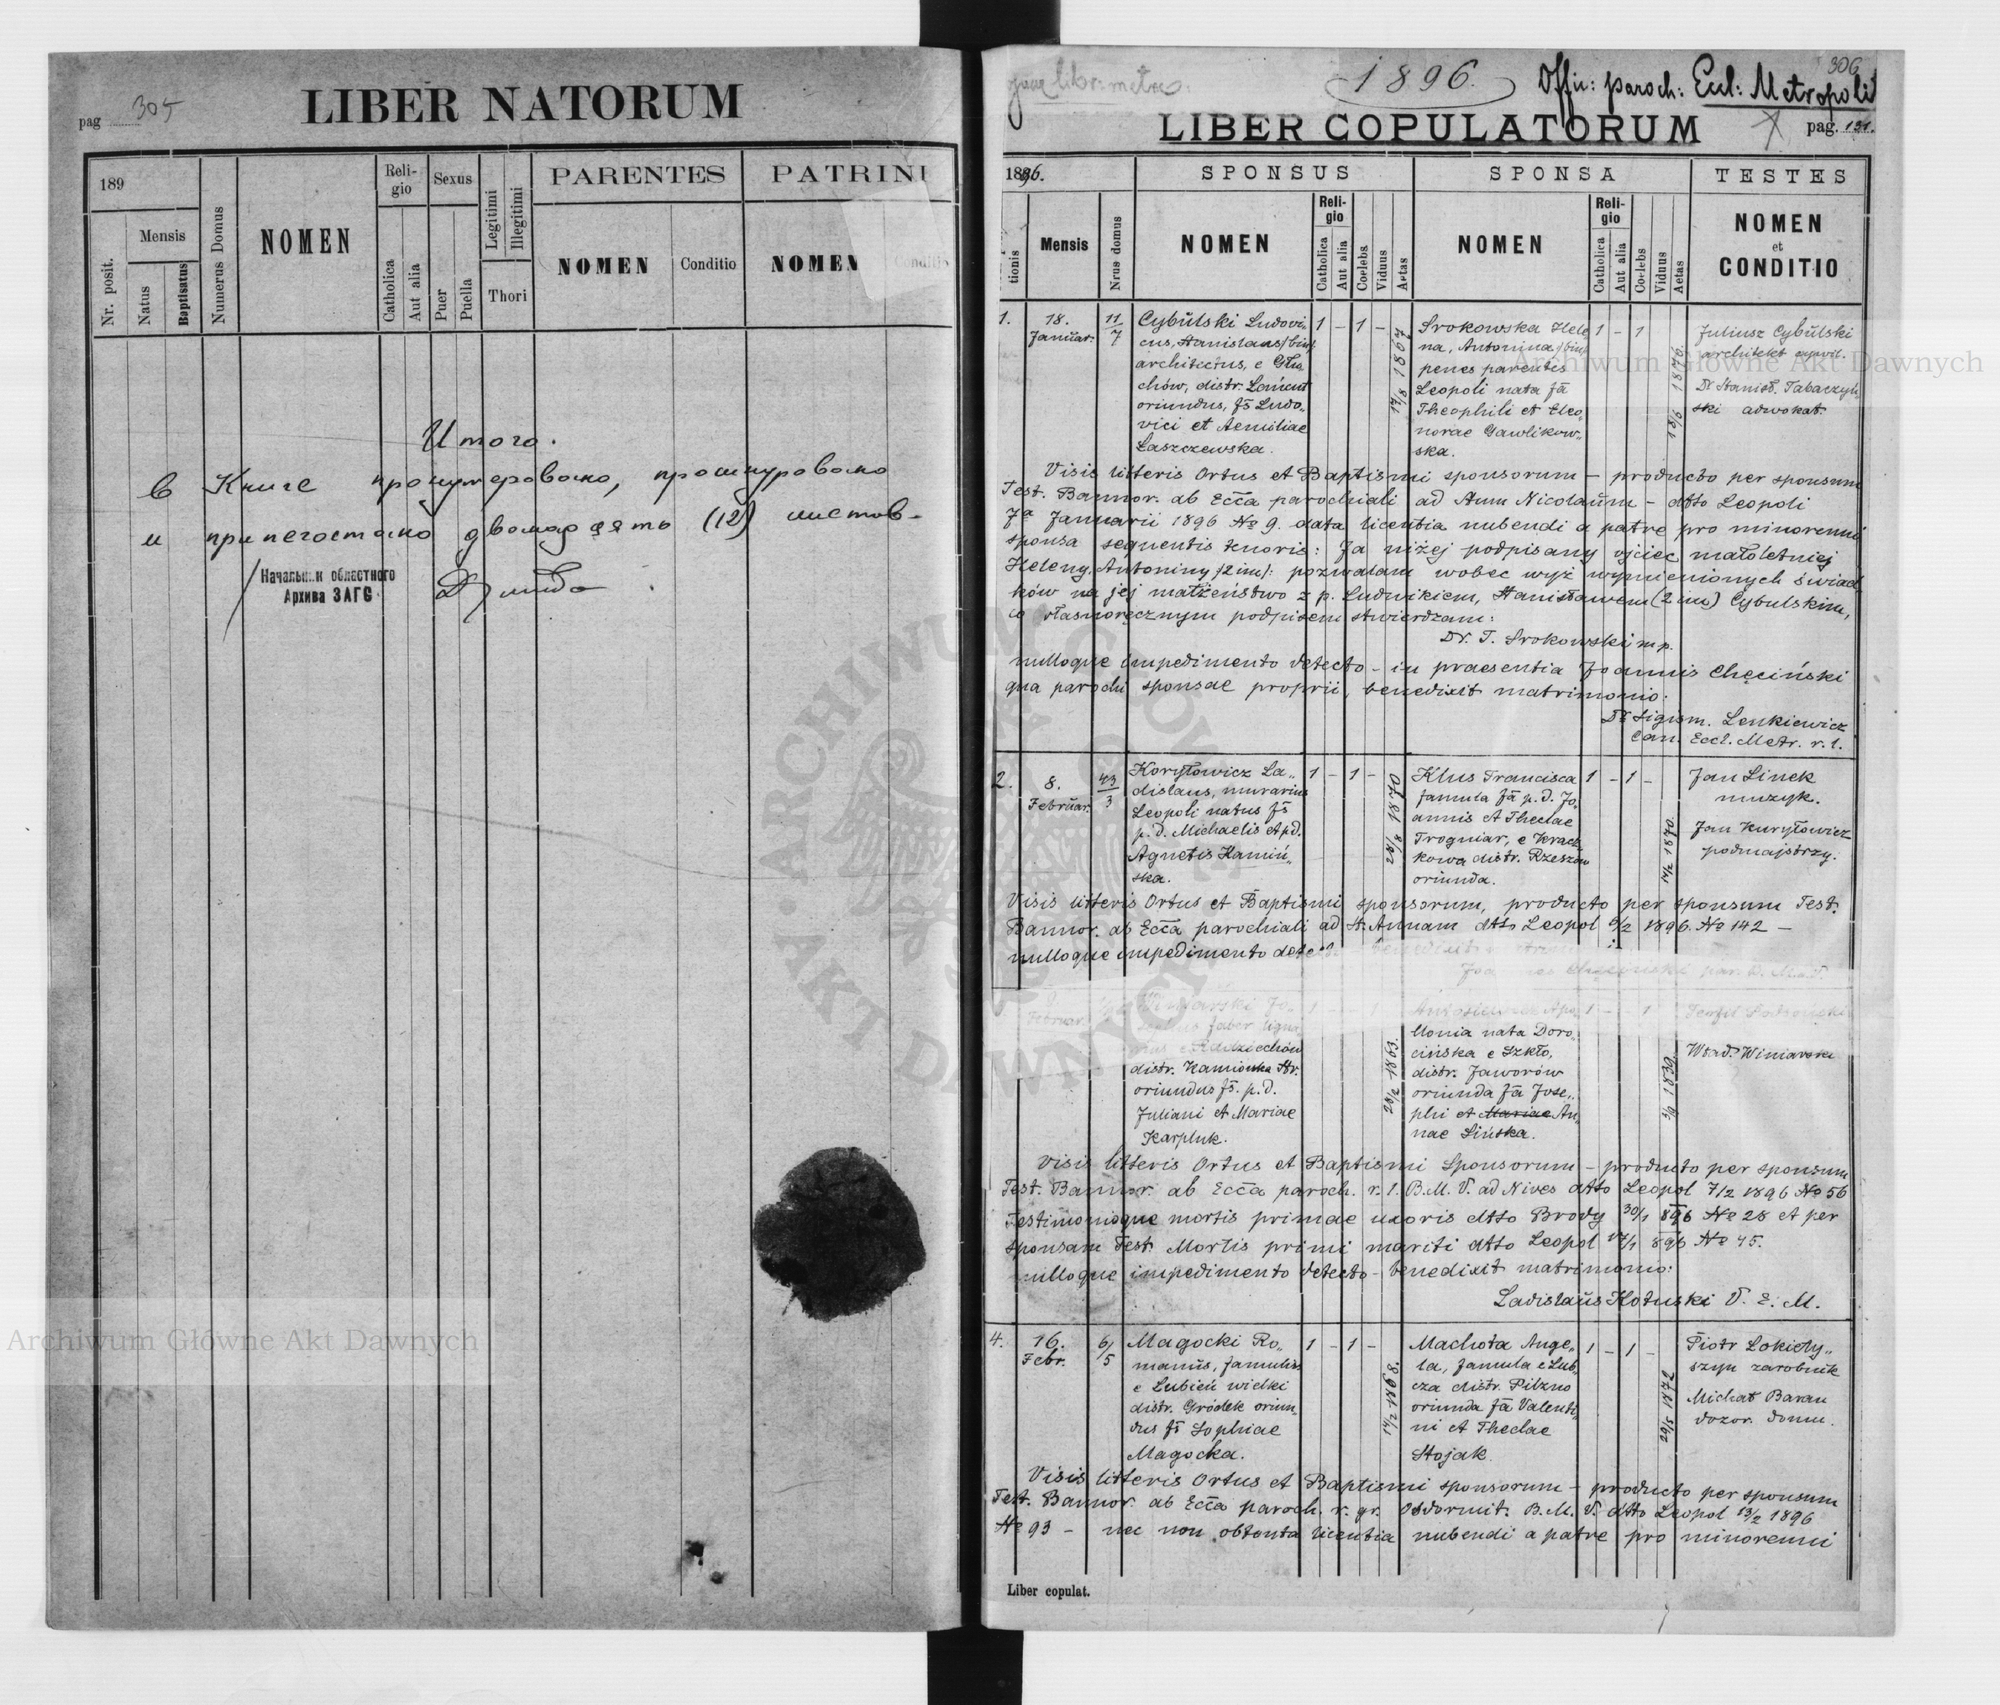 pag 305
LIBER NATORUM
189
Mensis
Nr. posit.
Natus
Baptisatus
Numerus Domus
NOMEN
Reli-
gio
Catholica
Aut alia
Sexus
Puer
Puella
Legitimi
Illegitimi
Thori
PARENTES
NOMEN
Conditio
PATRINI
NOMEN
Conditio
Итого.
в Книге пронумеровано, прошнуровано
и припечатано двенадцать (12) листов-
Начальник областного
Архива ЗАГС
306
1896. Offic: paroch: Eccl: Metropoli
LIBER COPULATORUM
pag. 131.
1896.
SPONSUS
SPONSA
TESTES
tionis
Mensis
Nrus domus
NOMEN
Reli-
gio
Catholica
Aut alia
Coelebs
Viduus
Aetas
NOMEN
Reli-
gio
Catholica
Aut alia
Coelebs
Viduus
Aetas
NOMEN
et
CONDITIO
1.
18.
Januar.
11/7
Cybulski Ludovi„
cus, Stanislaus /bin/
architectus, e Głu„
chów, distr. Łańcut
oriundus, fs Ludo„
vici et Aemiliae
Łaszczewska.
1 – 1 –
17/8 1867
Srokowska Hele
na, Antonina /bin/
penes parentes
Leopoli nata fa
Theophili et Eleo„
norae Gawlikow„
ska.
1 – 1
13/6 1876.
Juliusz Cybulski
architekt cywil.
Dr Stanisł. Tabaczyń
ski adwokat.
Visis litteris Ortus et Baptismi sponsorum – producto per sponsum
Test. Bannor. ab Ecca parochiali ad Stum Nicolaum – dtto Leopoli
Januarii 1896 No 9. data licentia nubendi a patre pro minorenni
sponsa sequentis tenoris: Ja niżej podpisany ojciec małoletniej
Heleny, Antoniny /2 im/: pozwalam wobec wyż wymienionych świad
ków na jej małżeństwo z p. Ludwikiem, Stanisławem (2 im) Cybulskim,
co własnoręcznym podpisem stwierdzam:
Dr. T. Srokowski mp.
nulloque impedimento detecto – in praesentia Joannis Chęciński
qua parochi sponsae proprii, benedixit matrimonio:
Dr Sigism. Lenkiewicz
Can. Eccl. Metr. r. l.
2.
8.
Februar.
43/3
Koryłowicz La„
dislaus, murarius
Leopoli natus fs
p. d. Michaelis et p.d.
Agnetis Kamiń„
ska.
1 – 1 –
28/8 1870
Klus Francisca
famula fa p. d. Jo„
annis et Theclae
Trogniar, e Kracz„
kowa distr. Rzeszów
oriunda.
1 – 1 –
14/2 1870.
Jan Linek
muzyk.
Jan Kuryłowicz
podmajstrzy.
Visis litteris Ortus et Baptismi sponsorum, producto per sponsum Test.
Bannor. ab Ecca parochiali ad St. Annam dtto Leopol 6/2 1896. No 142 –
nulloque impedimento detecto
Februar
Winiarski Jo„
sephus faber ligna„
rius e Radziechów
distr. Kamionka Str.
oriundus fs. p. d.
Juliani et Mariae
Karpluk.
28/2 1863.
Antosiewicz Apo„
llonia nata Doro„
cińska e Szkło,
distr. Jaworów
oriunda fa Jose„
phi et Mariae An„
nae Lińska.
3/9 1839.
Wład. Winiarski
Visis litteris Ortus et Baptismi Sponsorum – producto per sponsum
Test. Bannor. ab Ecca paroch. r. l. B. M. V. ad Nives dtto Leopol 7/2 1896 No 56
Testimonioque mortis primae uxoris dtto Brody 30/1 896 No 28 et per
sponsam Test. Mortis primi mariti dtto Leopol 17/1 896 No 45.
nulloque impedimento detecto – benedixit matrimonio:
Ladislaus Kotuski V. E. M.
4.
16.
Febr.
6/5
Magocki Ro„
manus, famulus
e Lubień wielki
distr. Gródek oriun„
dus fs Sophiae
Magocka.
1 – 1 –
14/2 1868.
Machota Ange„
la, famula e Lub„
cza distr. Pilzno
oriunda fa Valenti„
ni et Theclae
Stojak.
1 – 1 –
29/5 1872
Piotr Łokichy„
szyn zarobnik
Michał Baran
dozor. domu.
Visis litteris Ortus et Baptismi sponsorum – producto per sponsum
Test. Bannor. ab Ecca paroch. r. gr. Obdormit. B. M. V. dtto Leopol 13/2 1896
No 93 – nec non obtenta licentia nubendi a patre pro minorenni
Liber copulat.
Archiwum Główne Akt Dawnych
Archiwum Główne Akt Dawnych
ARCHIWUM GŁÓWNE AKT DAWNYCH